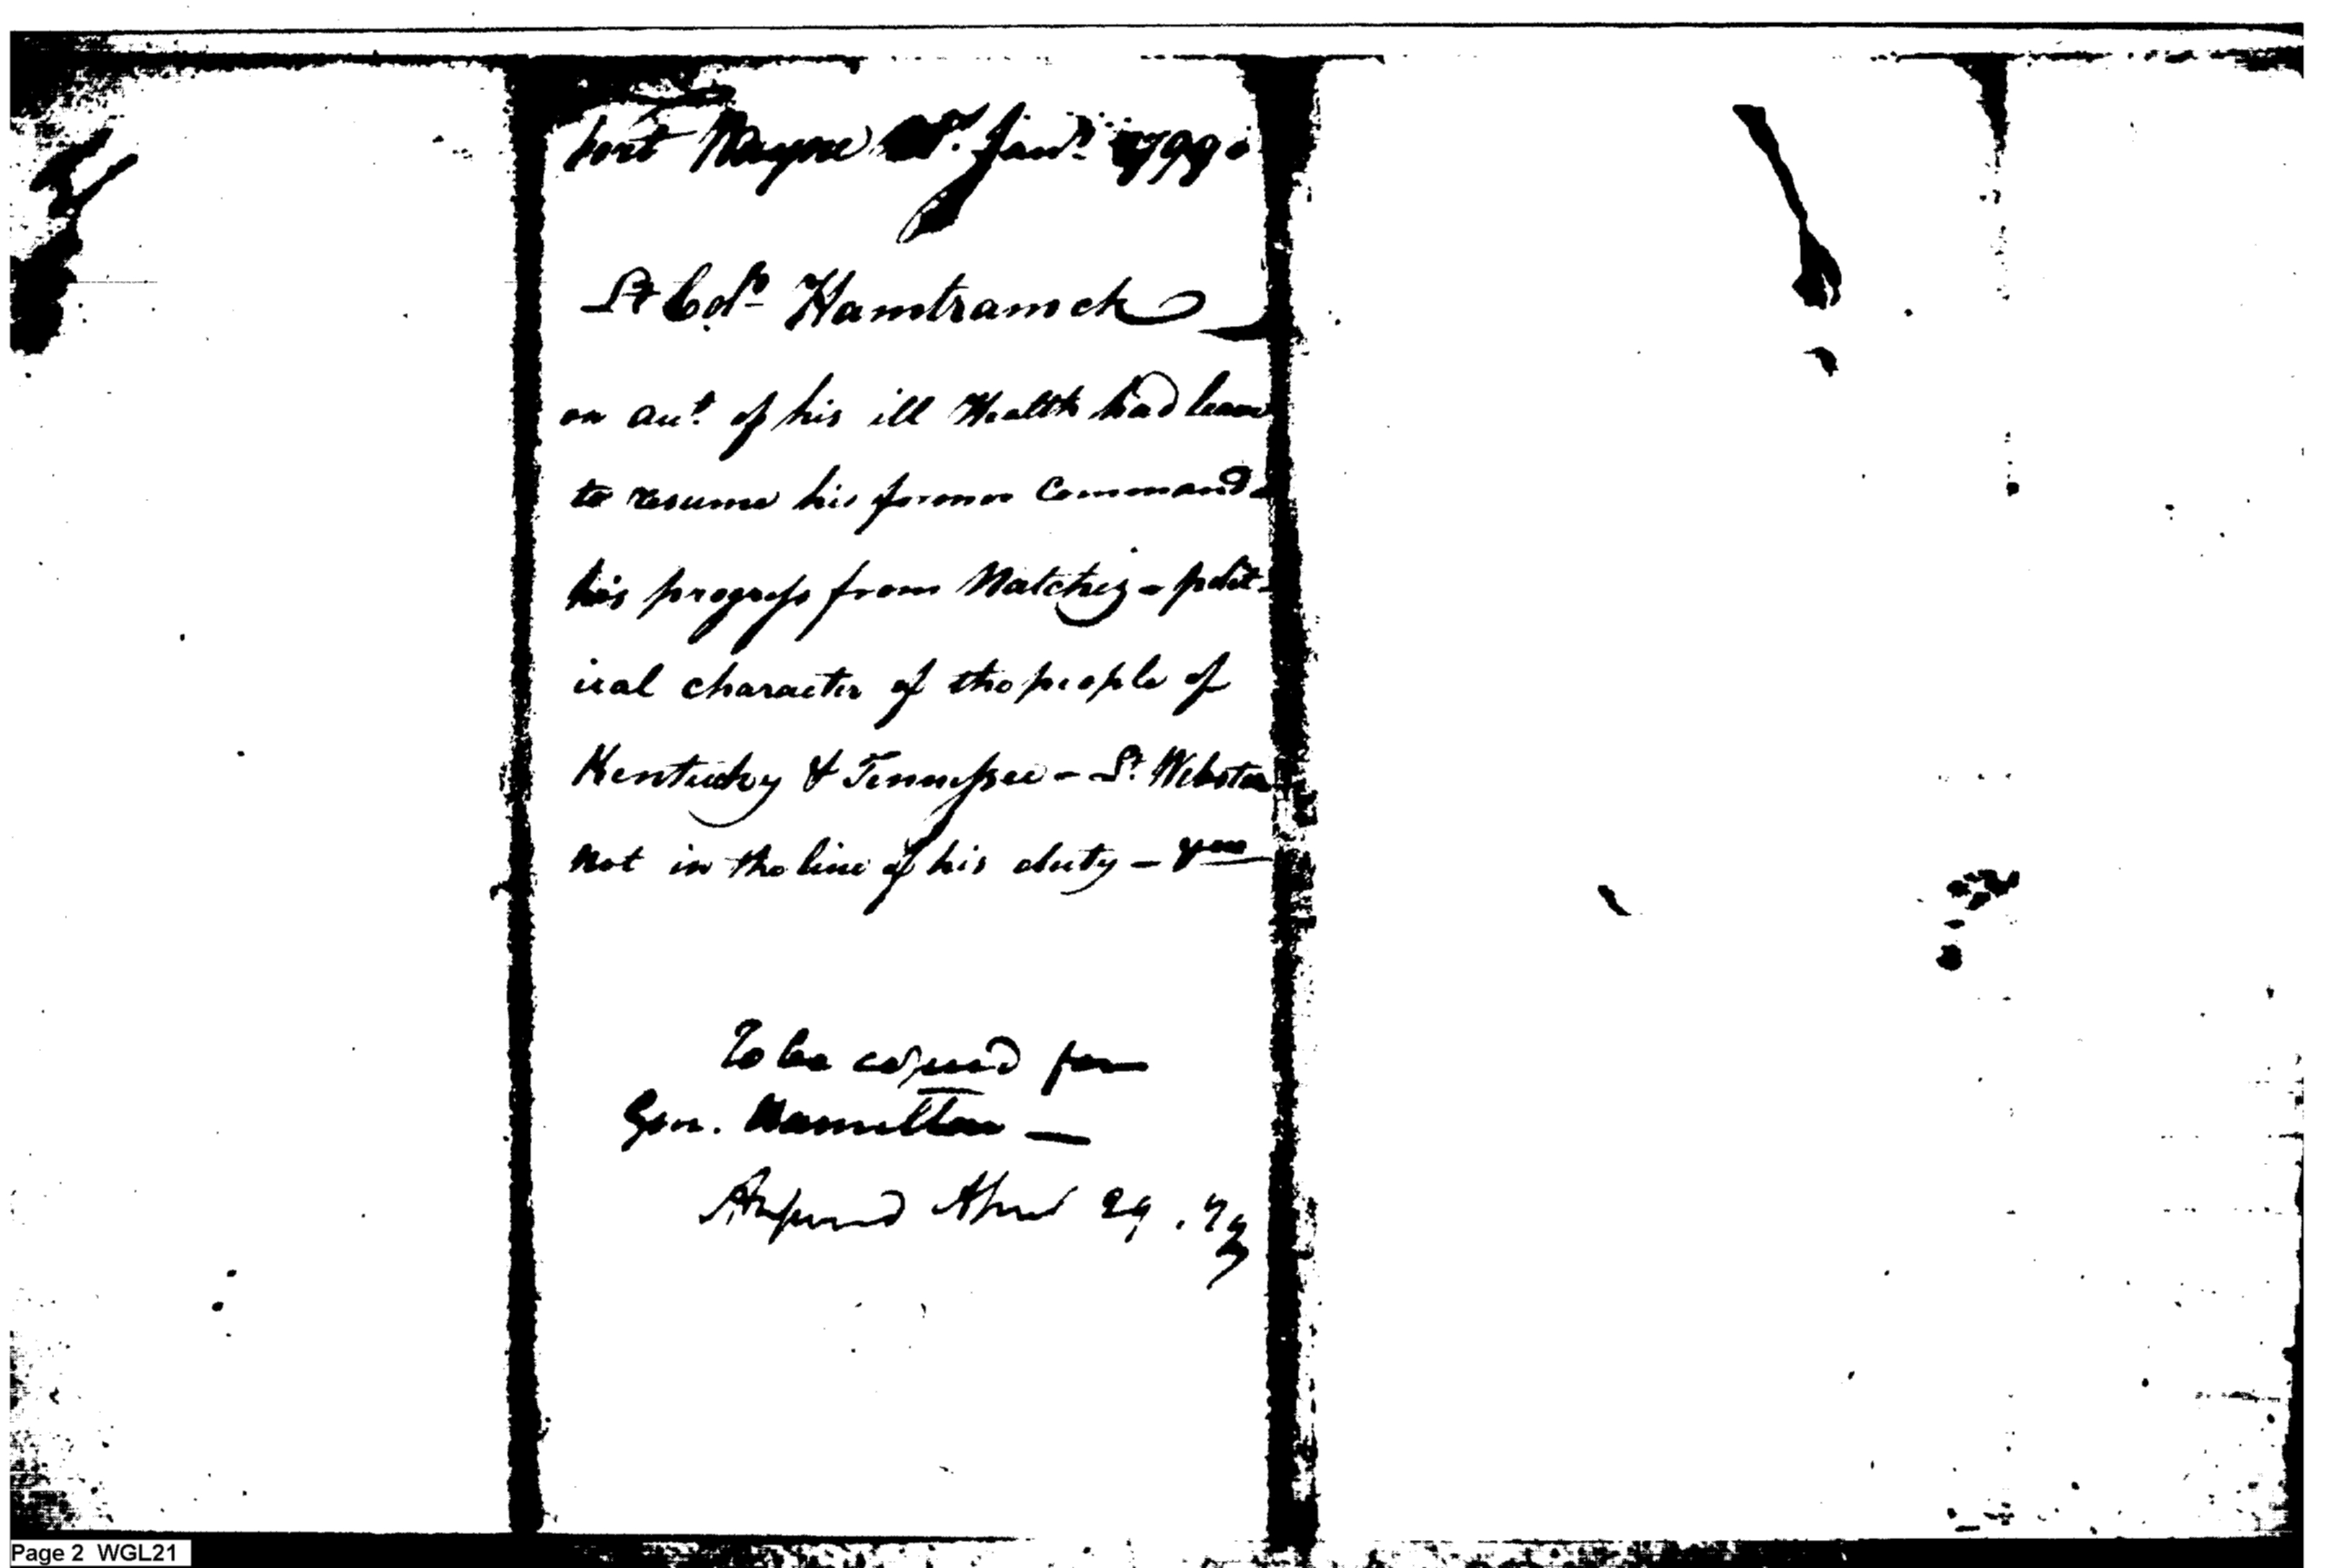 Fort Wayne Jany. 1799.
Lt Colo. Hamtramck
on acct. of his ill Health had leave
to resume his former Command
his progress from Natchez - polit-
ical character of the people of
Kentucky & Tennessee - Lt. Webster
not in the line of his duty -
To be copied for
Gen. Hamilton —
Answered 29. 99
Page 2 WGL21